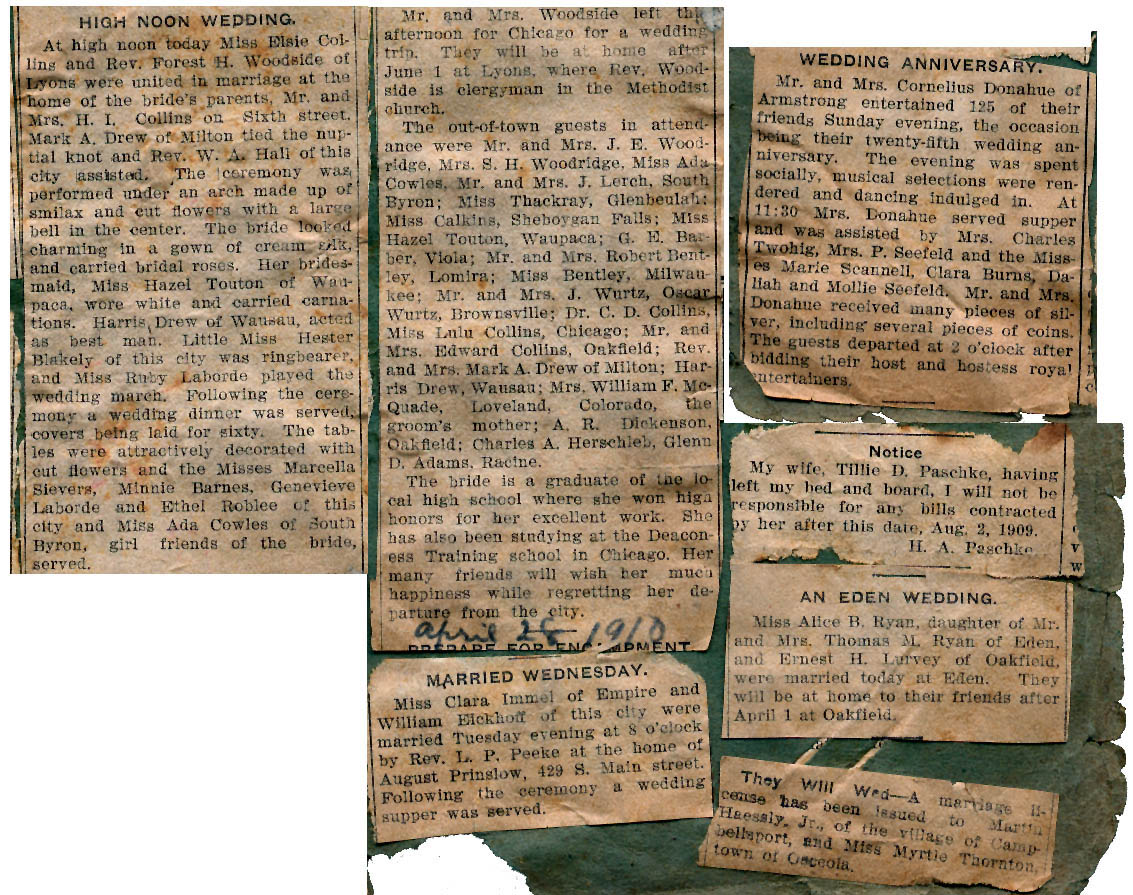 HIGH NOON WEDDING.
At high noon today Miss Elsie Col-
lins and Rev. Forest H. Woodside of
Lyons were united in marriage at the
home of the bride's parents, Mr. and
Mrs. H. I. Collins on Sixth street.
Mark A. Drew of Milton tied the nup-
tial knot and Rev. W. A. Hall of this
city assisted. The ceremony was
performed under an arch made up of
smilax and cut flowers with a large
bell in the center. The bride looked
charming in a gown of cream silk,
and carried bridal roses. Her brides-
maid, Miss Hazel Touton of Wau-
paca, wore white and carried carna-
tions. Harris Drew of Wausau, acted
as best man. Little Miss Hester
Blakely of this city was ringbearer,
and Miss Ruby Laborde played the
wedding march. Following the cere-
mony a wedding dinner was served,
covers being laid for sixty. The tab-
les were attractively decorated with
cut flowers and the Misses Marcella
Sievers, Minnie Barnes, Genevieve
Laborde and Ethel Roblee of this
city and Miss Ada Cowles of South
Byron, girl friends of the bride,
served.
Mr. and Mrs. Woodside left this
afternoon for Chicago for a wedding
trip. They will be at home after
June 1 at Lyons, where Rev. Wood-
side is clergyman in the Methodist
church.
The out-of-town guests in attend-
ance were Mr. and Mrs. J. E. Wood-
ridge, Mrs. S. H. Woodridge, Miss Ada
Cowles, Mr. and Mrs. J. Lerch, South
Byron; Miss Thackray, Glenbeulah;
Miss Calkins, Sheboygan Falls; Miss
Hazel Touton, Waupaca; G. E. Bar-
ber, Viola; Mr. and Mrs. Robert Bent-
ley, Lomira; Miss Bentley, Milwau-
kee; Mr. and Mrs. J. Wurtz, Oscar
Wurtz, Brownsville; Dr. C. D. Collins,
Miss Lulu Collins, Chicago; Mr. and
Mrs. Edward Collins, Oakfield; Rev.
and Mrs. Mark A. Drew of Milton; Har-
ris Drew, Wausau; Mrs. William F. Mc-
Quade, Loveland, Colorado, the
groom's mother; A. R. Dickenson,
Oakfield; Charles A. Herschleb, Glenn
D. Adams, Racine.
The bride is a graduate of the lo-
cal high school where she won high
honors for her excellent work. She
has also been studying at the Deacon-
ess Training school in Chicago. Her
many friends will wish her much
happiness while regretting her de-
parture from the city.
April 28 1910
PREPARE FOR ENCAMPMENT
MARRIED WEDNESDAY.
Miss Clara Immel of Empire and
William Eickhoff of this city were
married Tuesday evening at 8 o'clock
by Rev. L. P. Peeke at the home of
August Prinslow, 429 S. Main street.
Following the ceremony a wedding
supper was served.
WEDDING ANNIVERSARY.
Mr. and Mrs. Cornelius Donahue of
Armstrong entertained 125 of their
friends Sunday evening, the occasion
being their twenty-fifth wedding an-
niversary. The evening was spent
socially, musical selections were ren-
dered and dancing indulged in. At
11:30 Mrs. Donahue served supper
and was assisted by Mrs. Charles
Twohig, Mrs. P. Seefeld and the Miss-
es Marie Scannell, Clara Burns, Da-
liah and Mollie Seefeld. Mr. and Mrs.
Donahue received many pieces of sil-
ver, including several pieces of coins.
The guests departed at 2 o'clock after
bidding their host and hostess royal
entertainers.
Notice
My wife, Tillie D. Paschke, having
left my bed and board, I will not be
responsible for any bills contracted
by her after this date, Aug, 2, 1909.
H. A. Paschke
AN EDEN WEDDING.
Miss Alice B. Ryan, daughter of Mr.
and Mrs. Thomas M. Ryan of Eden,
and Ernest H. Lurvey of Oakfield,
were married today at Eden. They
will be at home to their friends after
April 1 at Oakfield.
They Will Wed—A marriage li-
cense has been issued to Martin
Haessly, Jr., of the village of Camp-
bellsport, and Miss Myrtle Thornton,
town of Osceola.